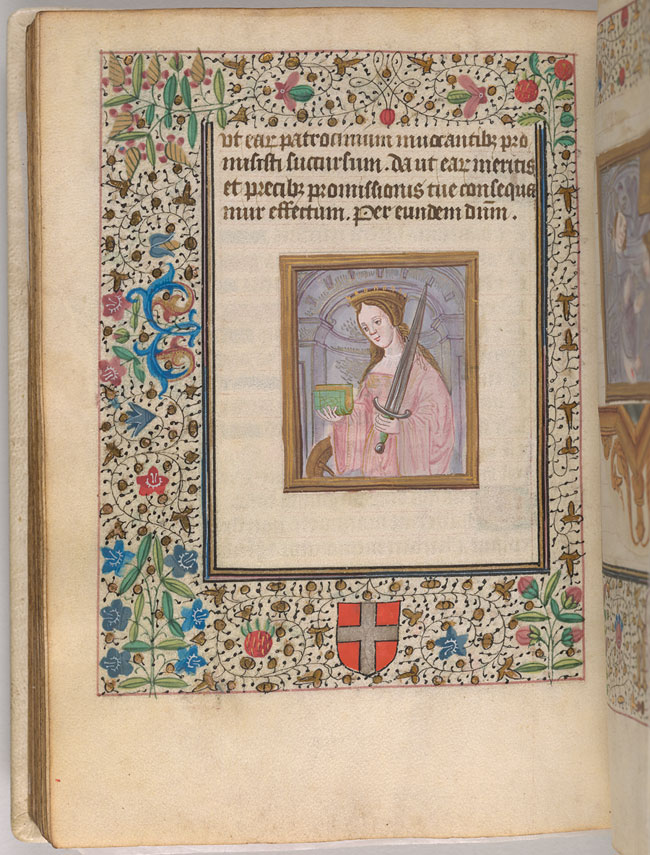 ut ear patrocinium invocantibz pro
misisti succursum. da ut ear meritis
et precibz promissionis tue consequa
mur effectum. Per eundem dum.